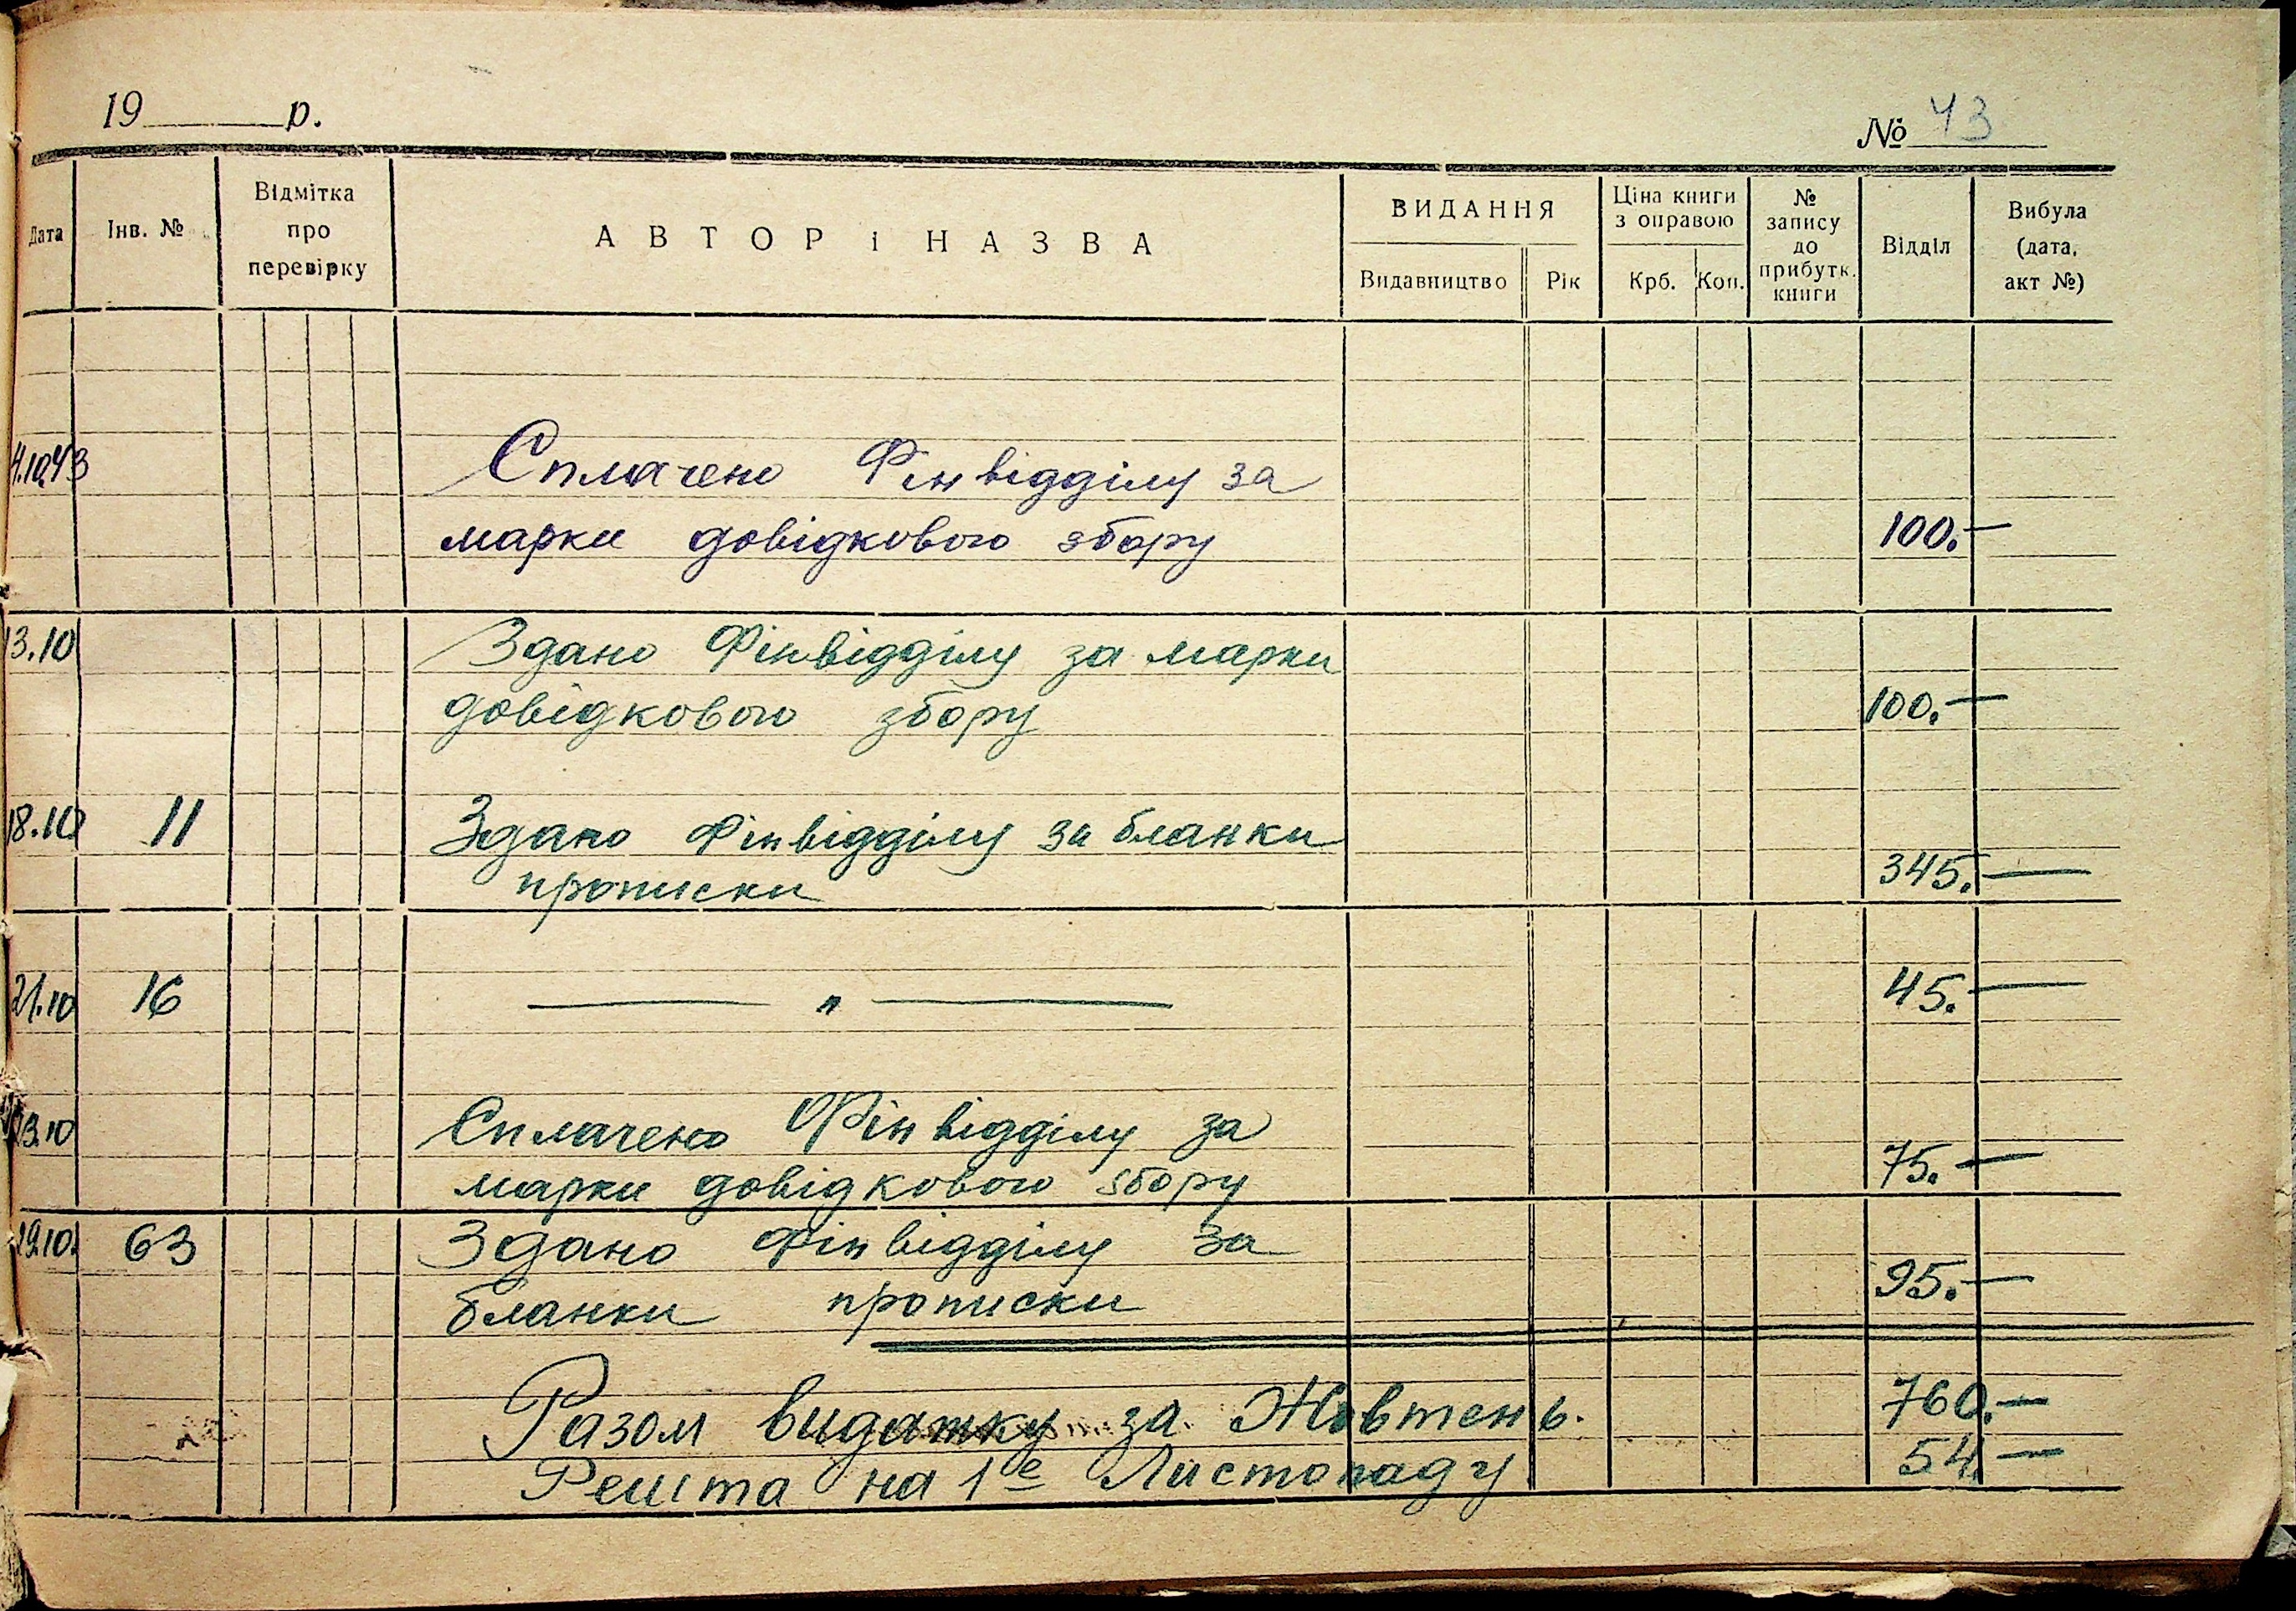 19 р.
№ 43
Дата
Інв. №
Відмітка
про
перевірку
АВТОР і НАЗВА
ВИДАННЯ
Видавництво
Рік
Ціна книги
з оправою
Крб.
Коп.
№
запису
до
прибутк.
книги
Відділ
Вибула
(дата,
акт №)
4.10.43 Сплачено Фінвідділу за
марки довідкового збору 100.—
13.10 Здано Фінвідділу за марки
довідкового збору 100.—
18.10 11 Здано Фінвідділу за бланки
прописки 345.—
21.10 16 — „ — 45.—
23.10 Сплачено Фінвідділу за
марки довідкового збору 75.—
29.10. 63 Здано Фінвідділу за
бланки прописки 95.—
Разом видатку за Жовтень. 760.—
Решта на 1е Листопаду 54.—